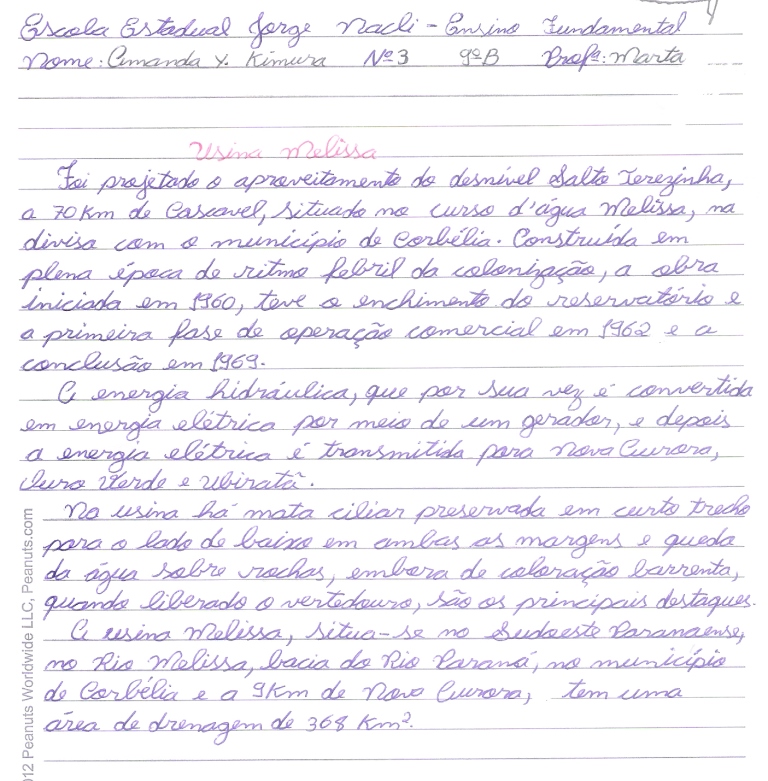 Escola Estadual Jorge Nacli - Ensino Fundamental
Nome: Amanda Y. Kimura Nº3 9ºB Profª: Marta
Usina Melissa
Foi projetado o aproveitamento do desnível Salto Terezinha,
a 70Km de Cascavel, situado no curso d'água Melissa, na
divisa com o município de Corbélia. Construída em
plena época de ritmo febril da colonização, a obra
iniciada em 1960, teve o enchimento do reservatório e
a primeira fase de operação comercial em 1962 e a
conclusão em 1969.
A energia hidráulica, que por sua vez é convertida
em energia elétrica por meio de um gerador, e depois
a energia elétrica é transmitida para Nova Aurora,
Ouro Verde e Ubiratã.
Na usina há mata ciliar preservada em curto trecho
para o lado de baixo em ambas as margens e queda
da água sobre rochas, embora de coloração barrenta,
quando liberado o vertedouro, são os principais destaques.
A usina Melissa, situa-se no Sudoeste Paranaense,
no Rio Melissa, bacia do Rio Paraná, no município
de Corbélia e a 9Km de Nova Aurora, tem uma
área de drenagem de 368 Km².
012 Peanuts Worldwide LLC, Peanuts.com